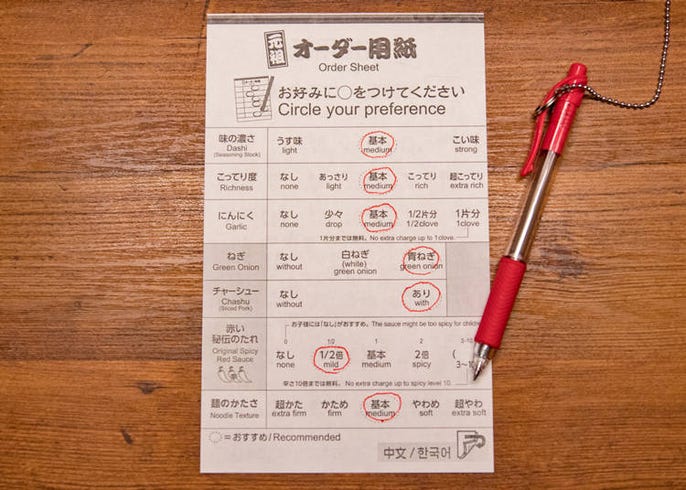 元祖 オーダー用紙
Order Sheet
お好みに○をつけてください
Circle your preference
味の濃さ うす味 基本 こい味
Dashi light medium strong
(Seasoning Stock)
こってり度 なし あっさり 基本 こってり 超こってり
Richness none light medium rich extra rich
にんにく なし 少々 基本 1/2片分 1片分
Garlic none drop medium 1/2clove 1clove
1片分までは無料。No extra charge up to 1clove.
ねぎ なし 白ねぎ 青ねぎ
Green Onion without (white) green onion
green onion
チャーシュー なし あり
Chashu without with
(Sliced Pork)
お子様には「なし」がおすすめ。The sauce might be too spicy for
赤い
秘伝のたれ
Original Spicy
Red Sauce
0 10
なし 1/2倍 基本 2倍 (
none mild medium spicy 3~10
辛さ10倍までは無料。No extra charge up to spicy level 10.
麺のかたさ 超かた かため 基本 やわめ 超やわ
Noodle Texture extra firm firm medium soft extra soft
○=おすすめ/Recommended
中文 / 한국어